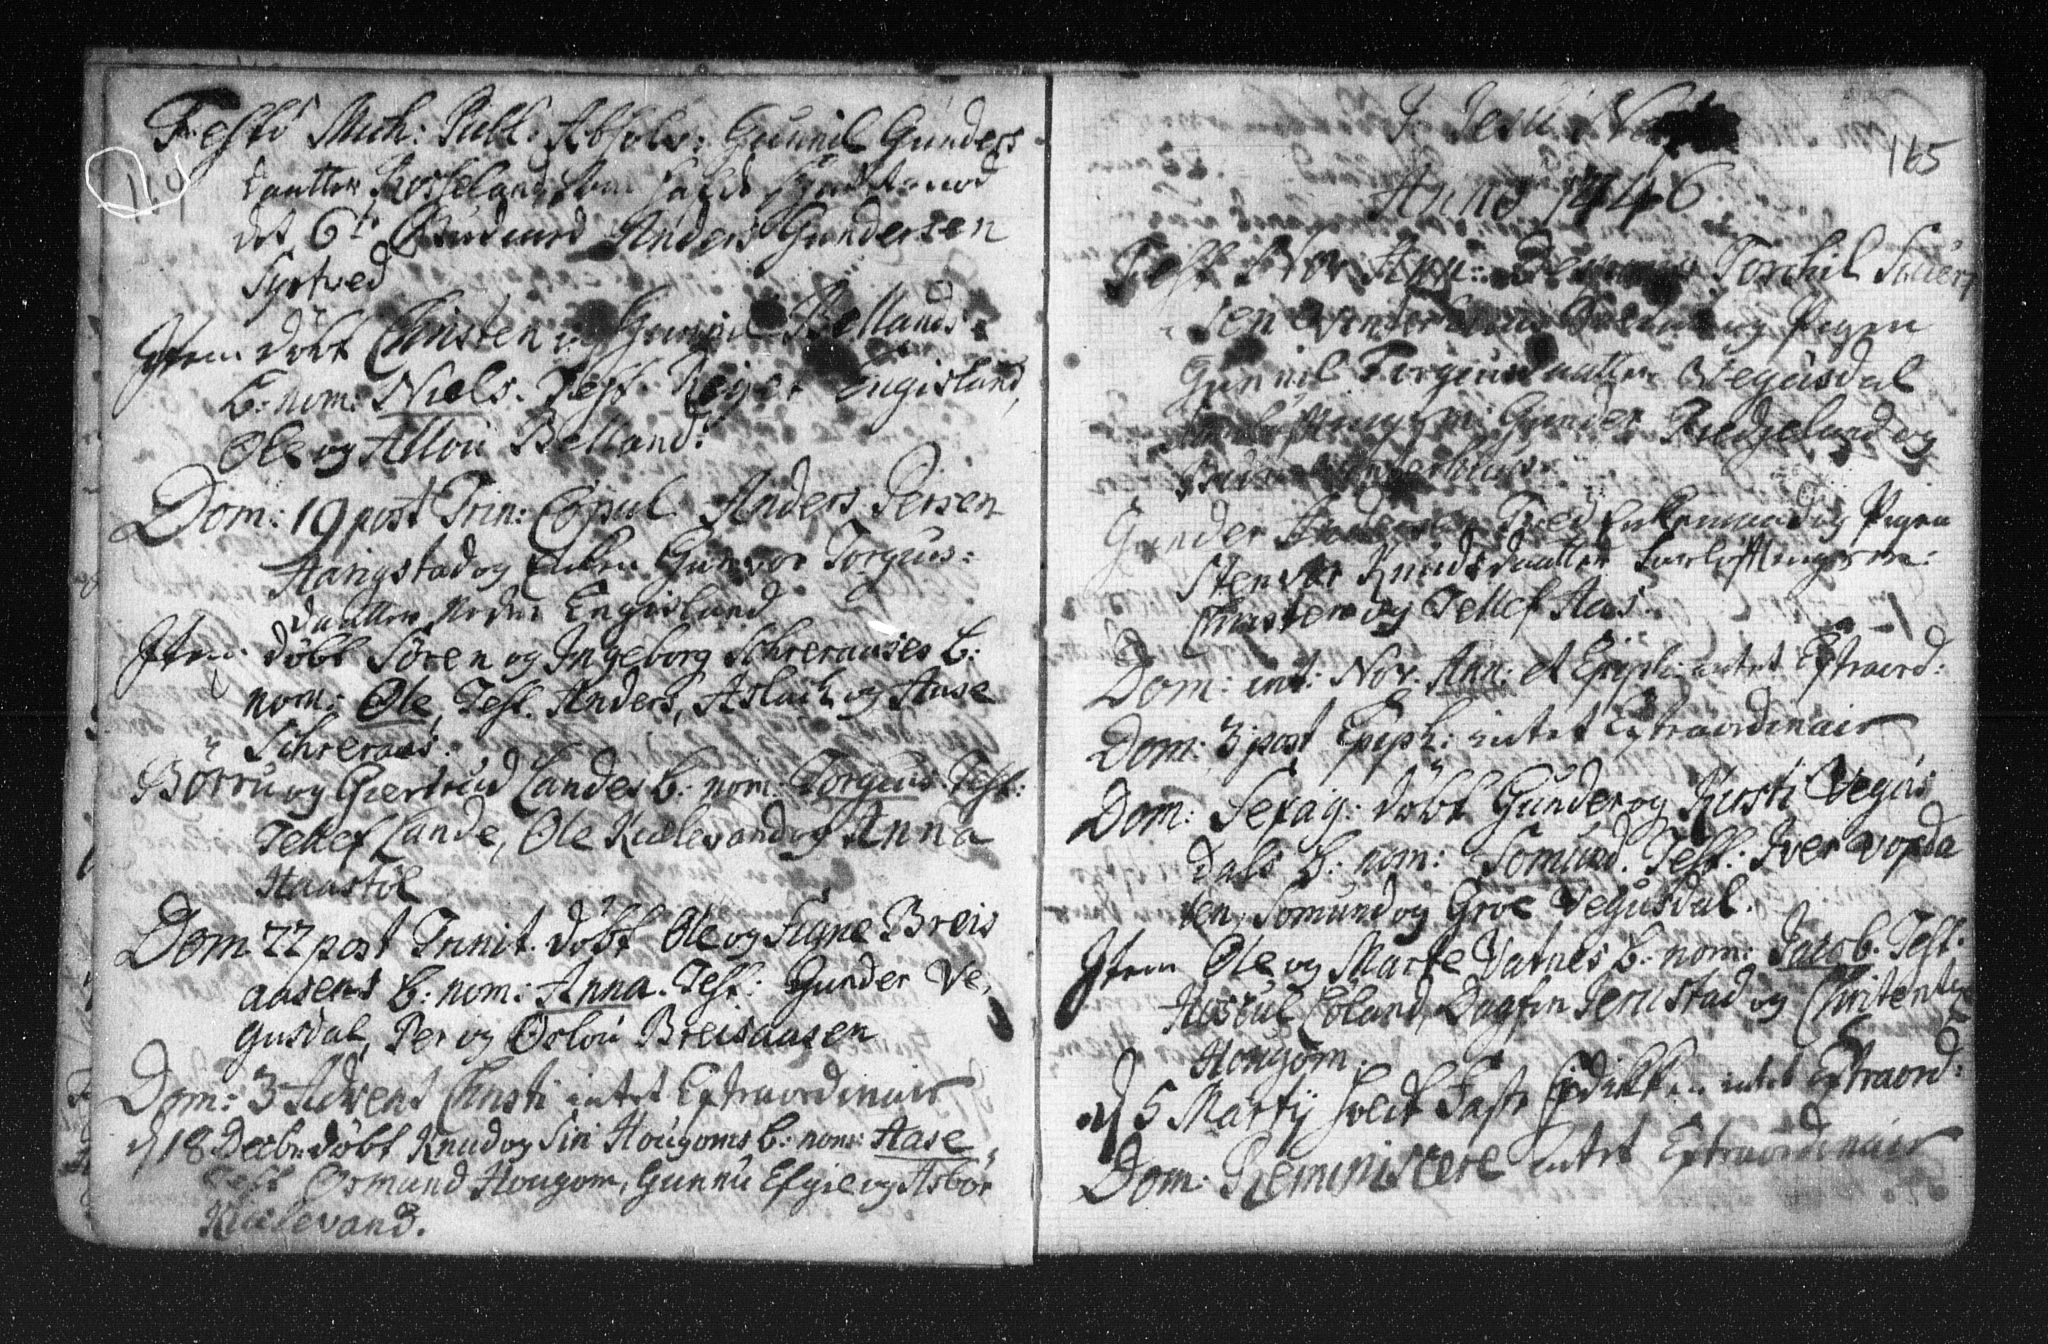 Festo Mich: Publ: Absolv: Gunnil Gunders
daatter Kosseland, som hafde syndet mod
det 6te Budord Anders Gundersen
Syrtved
Item döbt Christen og Gunnil Bellands
b: nom: Niels. Test. Reier Engisland,
Ole og Allou Belland.
Dom: 19 post Trin: Copul. Anders Persen
Hangstad og Enken Gunvor Torgius:
daatter Nedre Engisland
Item döbt Sören og Ingeborg Schreraases b:
nom: Ole, Test. Anders, Aslach og Aase
Schreraas.
Börru og Giertrud Landes b: nom: Torgius. Test:
Tellef Lande, Ole Kielevand og Anna
Haastöl
Dom 22 post Trinit. döbt Ole og Signe Breis
aasens b: nom: Anna. Test: Gunder Ve,
gusdal, Per og Oslou Breisaasen
Dom: 3 Advent Christi intet Extraordinair
d 18 Decbr: döbt Knud og Siri Hougoms b: nom: Aase,
Test Osmund Hougom, Gunnu Efgie og Asbör
Kielevand.
J. Jesu
165
Anno 1746
Fest Nov Ann: Torchil Siuer
sen og Pigen
Gunnil Torgiusdaatter Vegusdal
Gunder og
Gunder Enkemand og Pigen
Stenvor Knudsdaatter
Christen og Tellef Aas.
Dom: int: Nov. Ann: et Epiph: intet Extraord:
Dom: 3 post Epiph: intet Extraordinair
Dom: Sexag: döbt Gunder og Kirsti Vegus
dals b: nom: Somund. Test: Iver Vopda
len, Somund og Groe Vegusdal.
Item Ole og Marte Vatnes b: nom: Jacob. Test.
Hoscul Eoland, Dagfin Jerustad og Christentz
Hougom.
d 5 Martij holt Faste Predikken intet Extraord:
Dom: Reminiscere intet Extraordinair